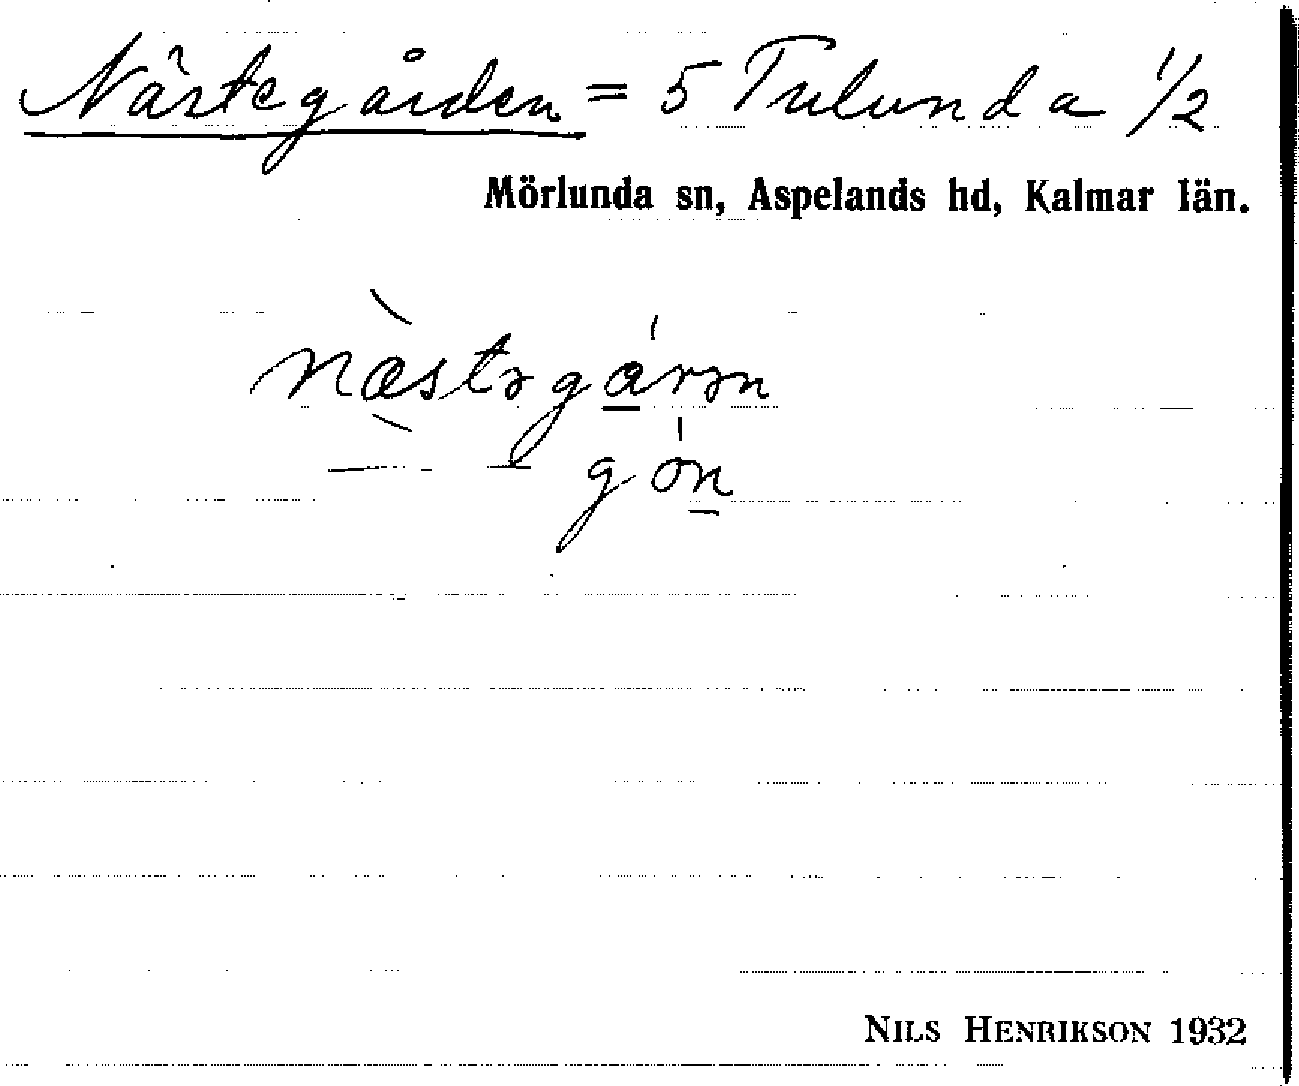 Nästegården = 5 Tulunda 1/2
Mörlunda sn, Aspelands hd, Kalmar län.
næ̀stəgárən
— — gón
NILS HENRIKSON 1932